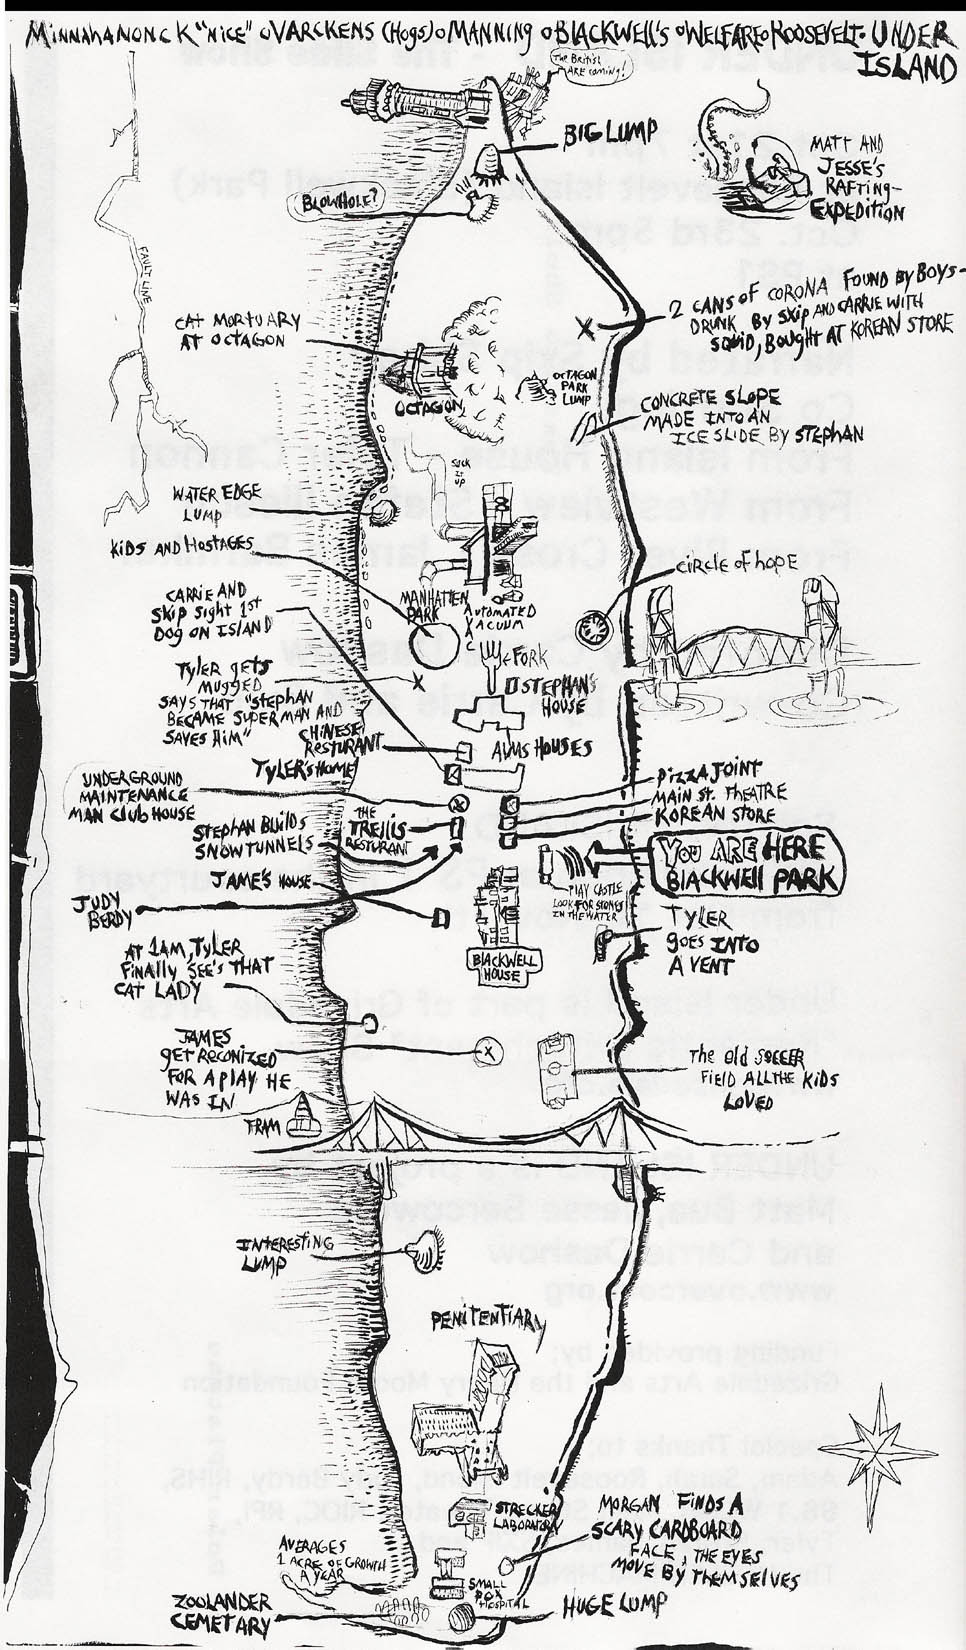 MinnahanoncK "nice" o VARCKENS (Hogs) o MANNING o BLACKWELL's o WELFARE o ROOSEVELT o UNDER
ISLAND
The British
ARE coming!
BIG LUMP
MATT AND
JESSE'S
RAFTING-
EXPEDITION
BLOWHOLE?
FAULT LINE
2 CANS OF CORONA FOUND BY BOYS-
DRUNK BY SKIP AND CARRIE WITH
SQUID, BOUGHT AT KOREAN STORE
CAT MORTUARY
AT OCTAGON
OCTAGON
OCTAGON
PARK
LUMP
CONCRETE SLOPE
MADE INTO AN
ICE SLIDE BY STEPHAN
SUCK
IT
UP
WATER EDGE
LUMP
KIDS AND HOSTAGES
CIRCLE OF HOPE
MANHATTEN
PARK
AUTOMATED
VACUUM
AVAC
CARRIE AND
SKIP SIGHT 1ST
DOG ON ISLAND
FORK
STEPHAN'S
HOUSE
TYLER GETS
MUGGED
SAYS THAT "STEPHAN
BECAME SUPERMAN AND
SAVES HIM"
CHINESE
RESTURANT
AWMS HOUSES
TYLER'S HOME
UNDERGROUND
MAINTENANCE
MAN CLUB HOUSE
PIZZA JOINT
MAIN ST. THEATRE
KOREAN STORE
THE
TRELLIS
RESTURANT
STEPHAN BUILDS
SNOW TUNNELS
YOU ARE HERE
BLACKWELL PARK
JAME'S HOUSE
PLAY CASTLE
LOOK FOR STONES
IN THE WATER
JUDY
BERDY
TYLER
GOES INTO
A VENT
BLACKWELL
HOUSE
AT 1AM, TYLER
FINALLY SEE'S THAT
CAT LADY
JAMES
GET RECONIZED
FOR A PLAY HE
WAS IN
The Old SOCCER
FIELD ALL THE KIDS
LOVED
TRAM
INTERESTING
LUMP
PENITENTIARY
STRECKER
LABORATORY
MORGAN FINDS A
SCARY CARDBOARD
FACE, THE EYES
MOVE BY THEMSELVES
AVERAGES
1 ACRE OF GROWTH
A YEAR
SMALL
POX
HOSPITAL
ZOOLANDER
CEMETARY
HUGE LUMP